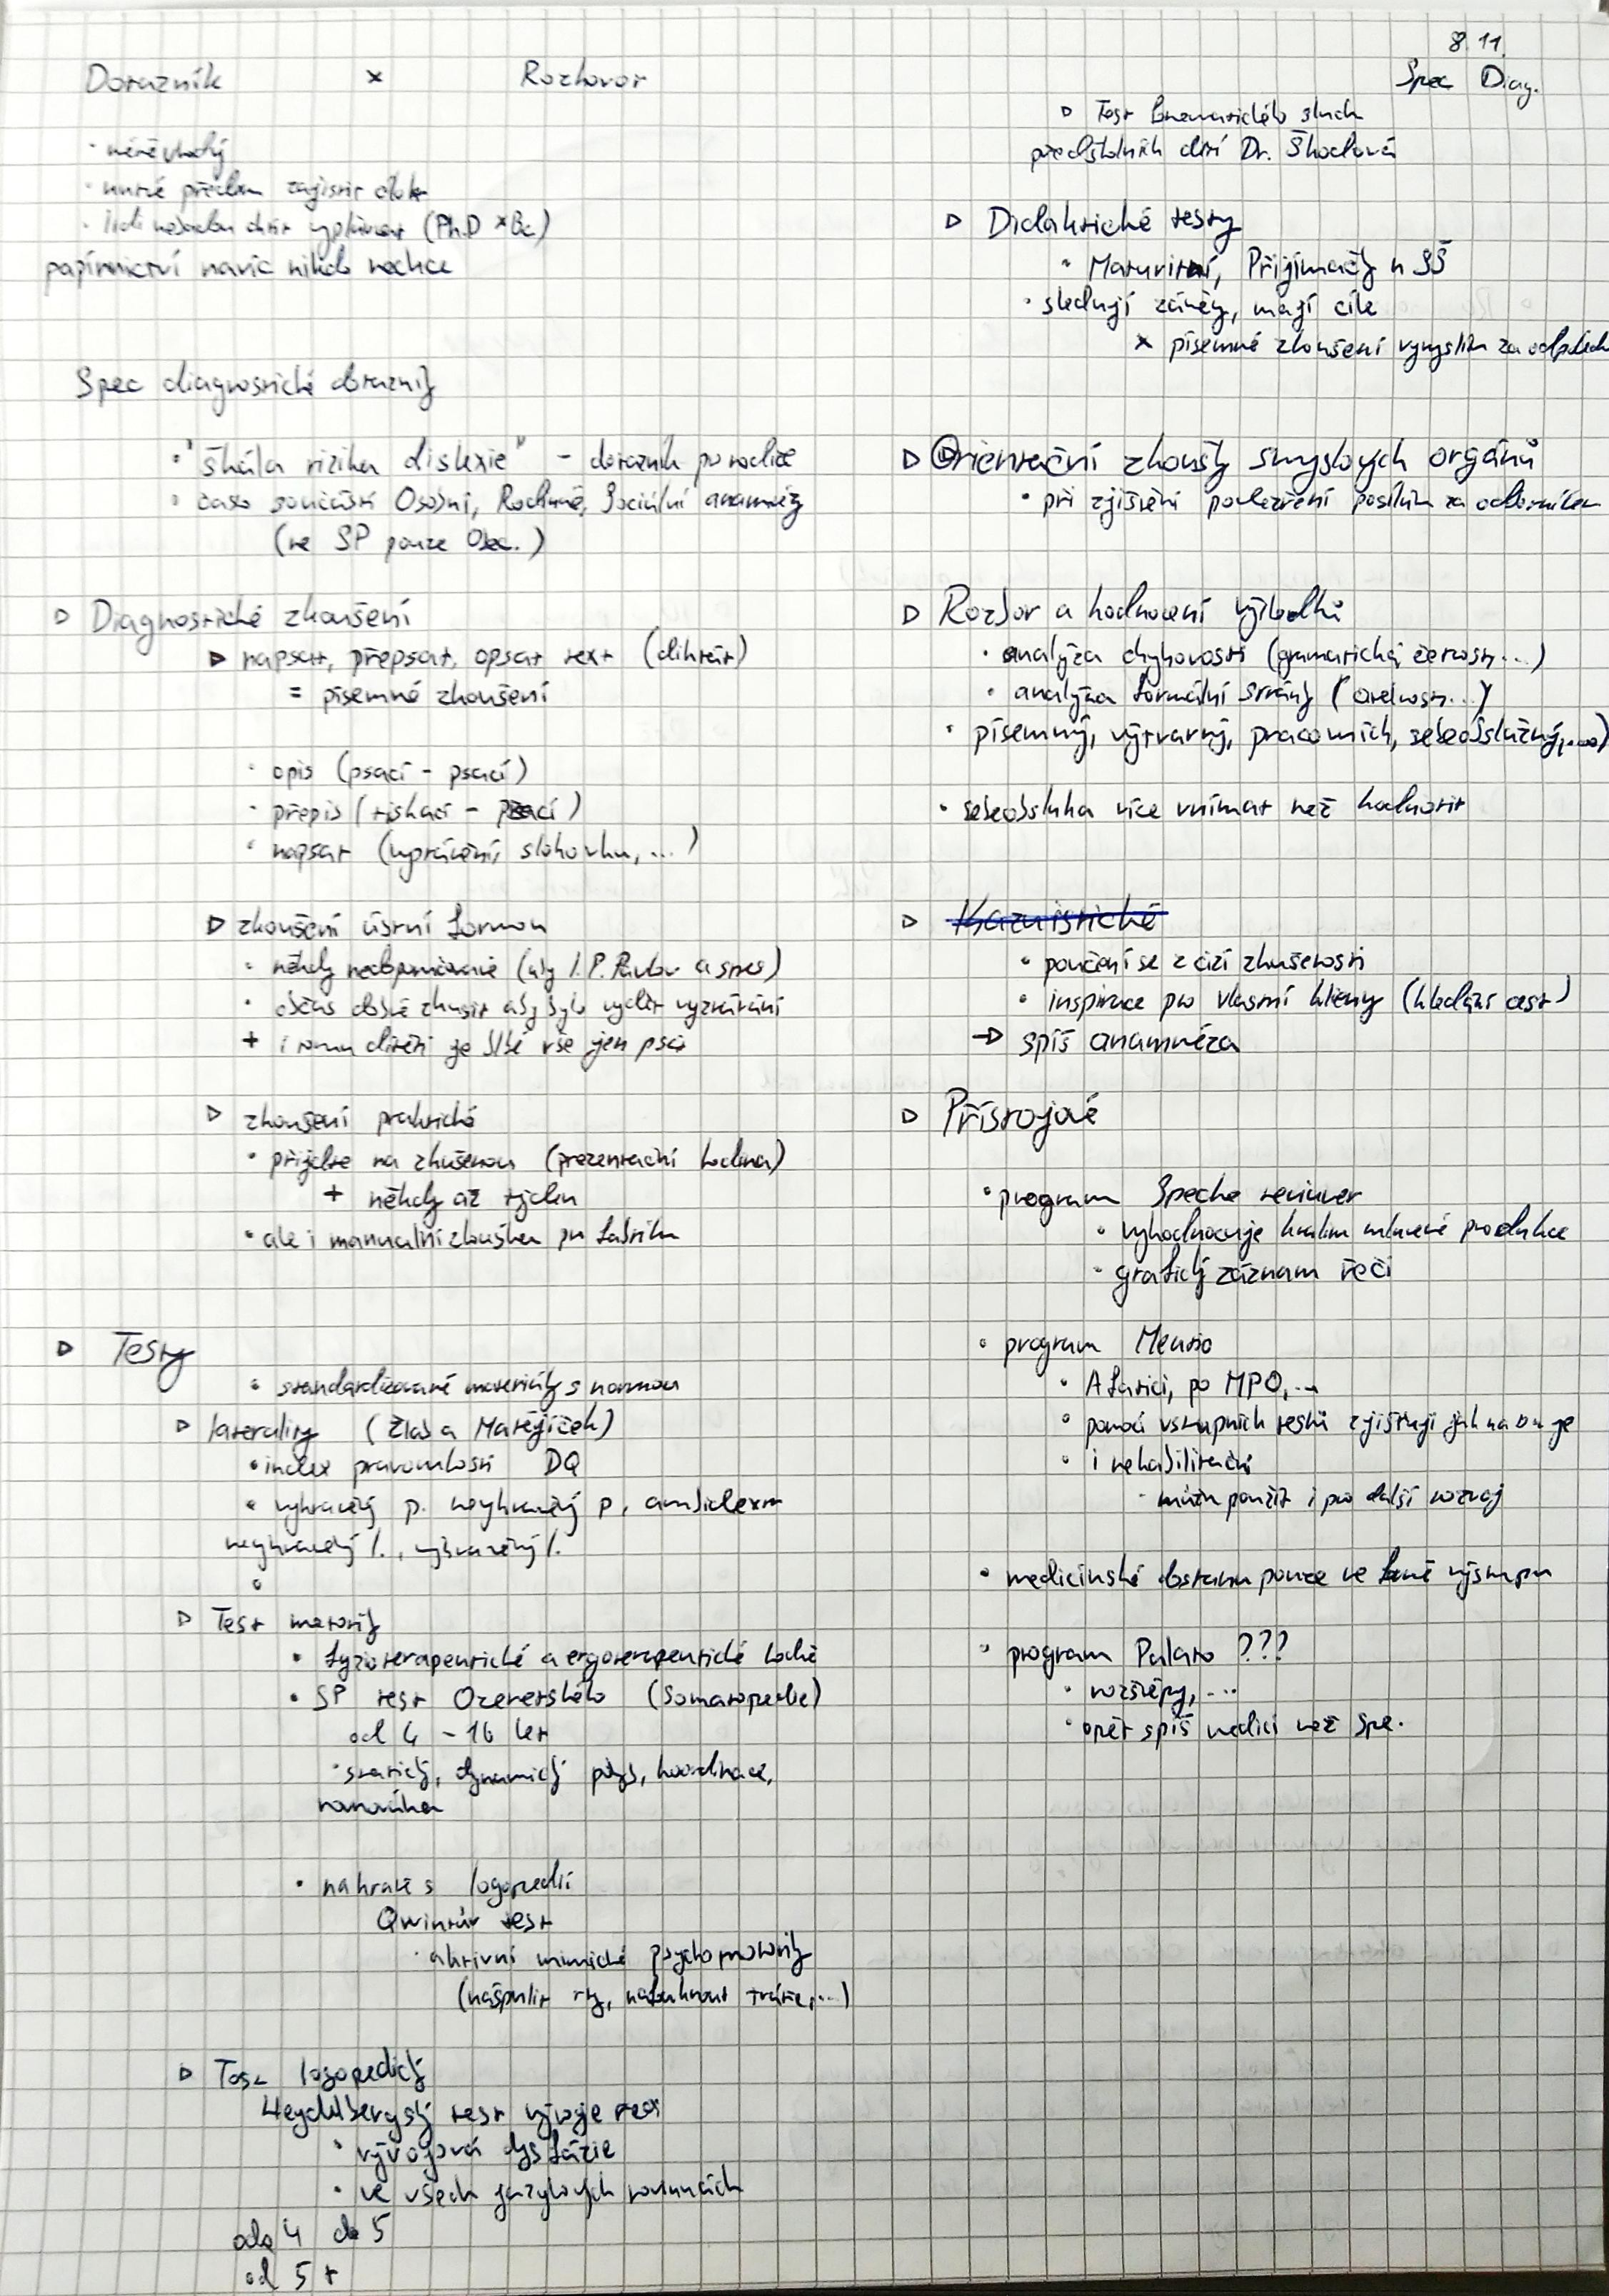 8.11.
Spec Diag.
Dotazník × Rozhovor
· méně vhodný
· nutné předem zajistit
· lidi nebudou chtít vyplňovat (Ph.D × Bc)
papírnictví navíc nikdo nechce
Spec diagnostické dotazníky
· "škála rizika dislexie" - dotazník pro rodiče
· často součástí Osobní, Rodinné, Sociální anamnézy
(ve SP pouze
▷ Diagnostické zkoušení
▷ napsat, přepsat, opsat text (diktát)
= písemné zkoušení
· opis (psací - psací)
· přepis (tiskací - psací)
· napsat (vyprávění, slohovku, ...)
▷ zkoušení ústní formou
· někdy (I. P. Pavlov a
· občas dobré zkusit aby bylo vidět
+ i tomu dítěti je blbé vše jen psát
▷ zkoušení praktické
· přijďte na zkušenou (prezentační hodina)
+ někdy až týden
· ale i manualní zkouška
▷ Testy
· standardizované materiály s normou
▷ laterality (Žlab a Matějíček)
· index pravorukosti DQ
· vyhraněný p. nevyhraněný p, ambidextr
nevyhraněný l., vyhraněný l.
·
▷ Test motoriky
· fyzioterapeutické a ergoterapeutické
· SP test Ozeretského (Somatopedie)
od 4 - 16 let
· statický, dynamický pohyb, koordinace,
rovnováha
· na hraně s logopedií
Qwintův test
· aktivní mimické psychomotoriky
(našpulit rty, nafouknout tváře, ...)
▷ Test logopedický
Heydlbergský test vývoje řeči
· vývojová dysfázie
· ve všech jazykových rovinách
oda 4 do 5
od 5 +
▷ Test fonematického sluchu
předškolních dětí Dr. Škodová
▷ Didaktické testy
· Maturitní, Přijímačky n SŠ
· sledují záměry, mají cíle
× písemné zkoušení vymyslím za odpoledne
▷ Orientační zkoušky smyslových orgánů
· při zjištění podezření posílám za odborníkem
▷ Rozbor a hodnocení výsledků
· analýza chybovosti (gramatická, četnost...)
· analýza formální stránky (
· písemný, výtvarný, pracovních, sebeobslužný, ...)
· sebeobsluha více vnímat než hodnotit
▷ Kazuistické
· poučení se z cizí zkušenosti
· inspirace pro vlastní klienty (hledání cest)
→ spíš anamnéza
▷ Přístrojové
· program Speche
· vyhodnocuje kvalitu mluvené produkce
· grafický záznam řeči
· program Mentio
· Afatici, po MPO, ...
· pomocí vstupních testů zjišťují jak na tom je
· i rehabilitační
· můžu použít i pro další rozvoj
· medicínské dostanu pouze ve formě výstupu
· program Palato ???
· rozštěpy, ...
· opět spíš medici než spe.